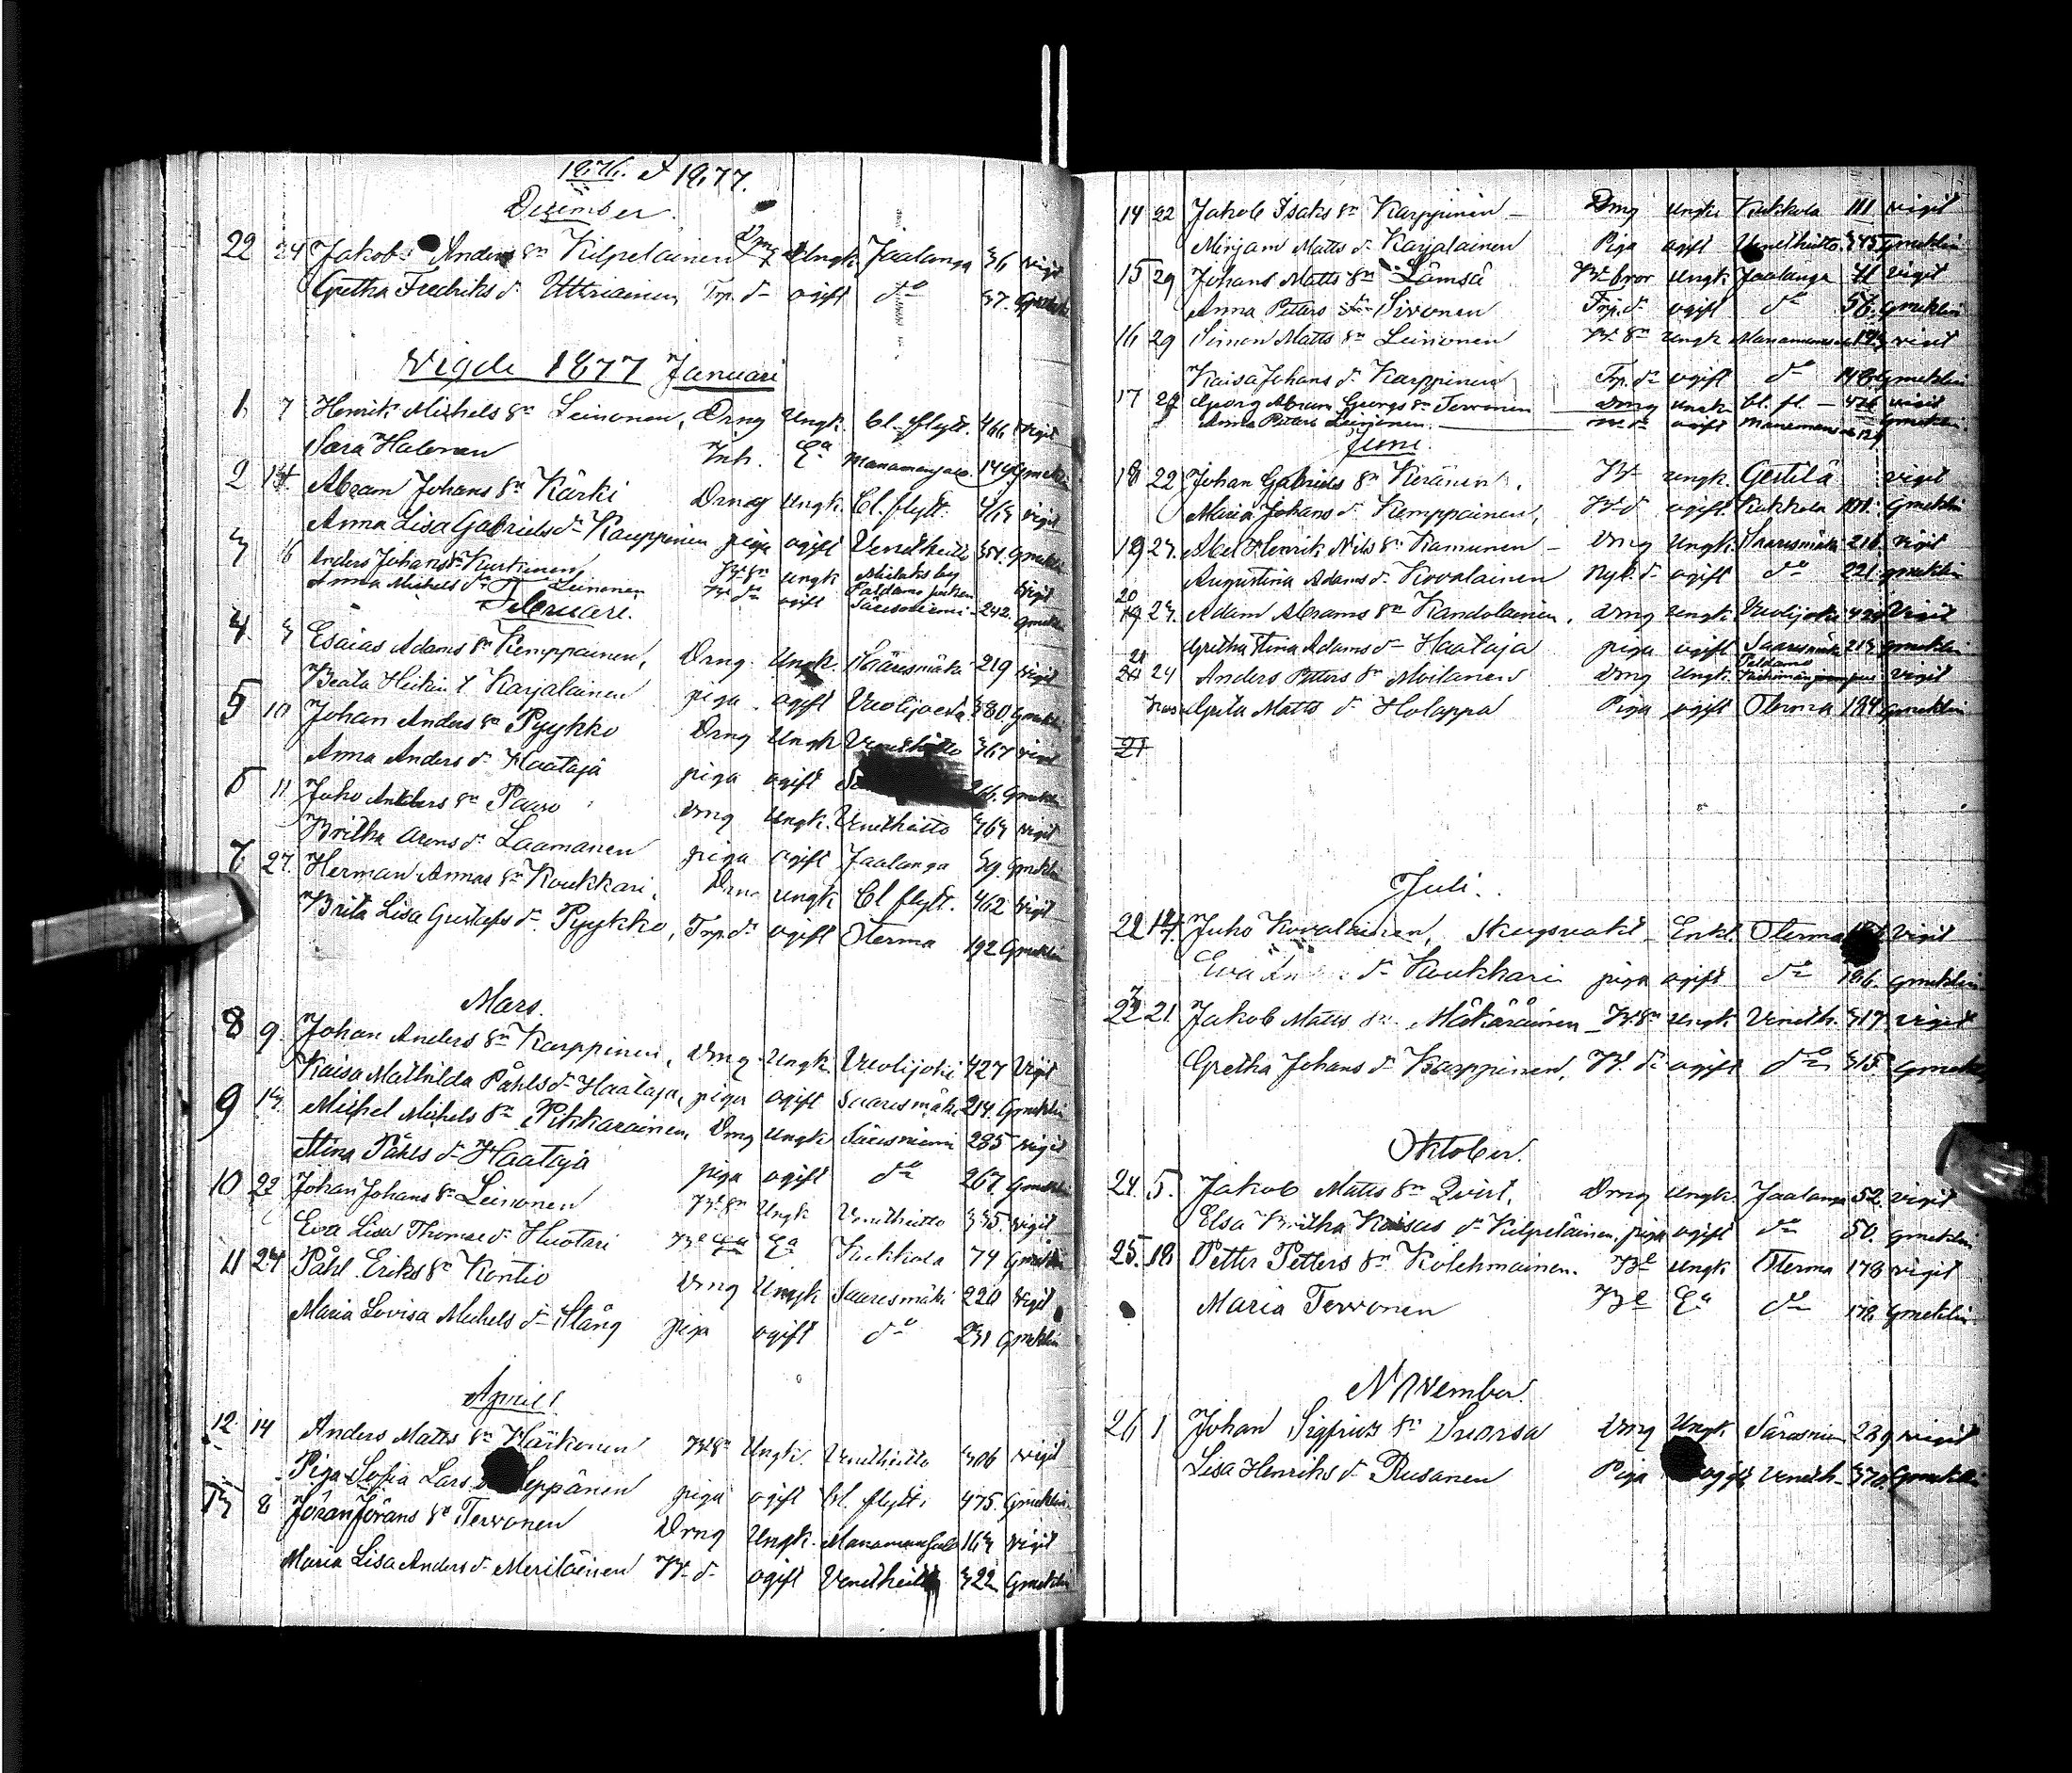 1876. & 1877.
December.
22 24 Jakob Anders sn Kilpeläinen Drng Ungk. Jaalanga 36 vigit
Gretha Fredriks d. Uttriainen Trp. d. ogift do 37. Gmeklin
Vigde 1877 Januari
1. 7 Henrik Michels sn Leinonen, Drng Ungk. Cl. flytt. 466 vigit
Sara Halonen Inh. Ea Manamansalo 149 Gmeklin
2 14 Abram Johans sn Kärki Drng Ungk. Cl. flytt. 463 vigit
Anna Lisa Gabriels d. Kauppinen piga ogift Venetheitto 351. Gmeklin
3 16 Anders Johans sn Kurkinen Bd sn ungk Mieluks by Paldamo vigit
Anna Michels d. Leinonen Bd d. ogift Säresniemi 242. Gmeklin
Februari.
4. 3 Esaias Adams sn Kemppainen, Drng. Ungk. Saaresmäki 219 vigit
Beata Heikin t. Karjalainen piga ogift Vuolijoki 380. Gmeklin
5 10 Johan Anders sn Pyykkö Drng Ungk Venetheitto 367 vigit
Anna Anders d. Haataja piga ogift 266. Gmeklin
6 11 Juho Anders sn Paaso Drng Ungk. Venetheitto 363 vigit
Britha Arons d. Laamanen piga ogift Jaalanga 39. Gmeklin
7. 27. Herman Annas sn Koukkari, Drng ungk Cl flytt. 462 vigit
Brita Lisa Gustafs d. Pyykkö, Trp. d. ogift Oterma 192 Gmeklin
Mars.
8 9. Johan Anders sn Karppinen, Drng. Ungk. Vuolijoki 427 Vigit
Kaisa Mathilda Påhls d. Haataja, piga ogift Saaresmäki 214. Gmeklin
9 13. Michel Michels sn Pikkarainen, Drng Ungk Säresniemi 285 vigit
Stina Påhls d. Haataja piga ogift do 267. Gmeklin
10 22 Johan Johans sn Leinonen Bd sn Ungk Venetheitto 335. vigit
Eva Lisa Thomae d. Huotari Ea Kukkola 74 Gmeklin
11 24 Påhl Eriks sn Kontio Drng Ungk Saaresmäki 220 vigit
Maria Lovisa Michels d. Stång piga ogift do 231 Gmeklin
April
12. 14 Anders Matts sn Härkönen Bd sn Ungk. Venetheitto 306 vigit
Piga Sofia Lars Seppänen piga ogift Cl. flytt. 475. Gmeklin.
13 8 Jöran Jörans sn Tervonen Drng Ungk. Manamansalo 163 vigit
Maria Lisa Anders d. Meriläinen Bd d. ogift Venetheitto 322 Gmeklin
14 22 Jakob Isaks sn Karppinen – Drng ungk. Kukkola 111 vigit
Mirjam Matts d. Karjalainen Piga ogift Venetheitto. 345 Gmeklin
15 29 Johans Matts sn Lämsä Bd bror Ungk. Jaalanga 41 vigit
Anna Petters d. Sivonen Trp. d. ogift do 56. Gmeklin
16 29 Simon Matts sn Leinonen Bd sn ungk Manamansalo vigit
Kaisa Johans d. Karppinen Trp. d. ogift do 148. Gmeklin
17 29 Georg Abram Georgs sn Tervonen Drng ungk. Cl. fl. – 476 vigit
Anna Petters Leinonen ogift Manamansalo 129 Gmeklin.
Juni
18 22 Johan Gabriels sn Keränen. Bd ungk. Gestilä vigit
Maria Johans d. Kemppainen, Bd d. ogift. Kukkola 101. Gmeklin
19 23. Abel Henrik Nils sn Kamunen – Drng Ungk. Saaresmäki 216. vigit
Augustina Adams d. Kovalainen Nyb. d. ogift do 221. Gmeklin
20
19 23. Adam Abrams sn Kandolainen, Drng ungk Vuolijoki 420 Vigit
Gretha Stina Adams d. Haataja piga ogift Saaresmäki 213 gmeklin
21
20 24 Anders Petters sn Moilanen Drng Ungk. Paldamo vigit
Greta Matts d. Holappa Piga ogift Oterma 194 gmeklin
21
Juli.
22 Juho Kovalainen, Skogsvakt – Enkl. Oterma vigit
Eva d. Koukkari piga ogift do 186. gmeklin
23 21. Jakob Matts sn Mäkäräinen – Bd sn ungk Veneth. 317. vigit
Gretha Johans d. Karppinen, Bd. d. ogift do 315. gmeklin
Oktober.
24. 5. Jakob Matts sn Qvist, Drng ungk. Jaalanga 52. vigit
Elsa Britha Kaisas d. Kilpeläinen, piga ogift do 50. gmeklin
25. 18 Petter Petters sn Kolehmainen. Bd ungk Oterma 178 vigit
Maria Tervonen Ea do 178 gmeklin.
November.
26 1 Johan Sigfrids sn Suorsa Drng Ungk Säresniemi 289 vigit
Lisa Henriks d. Rusanen Piga ogift Veneth. 370. Gmeklin